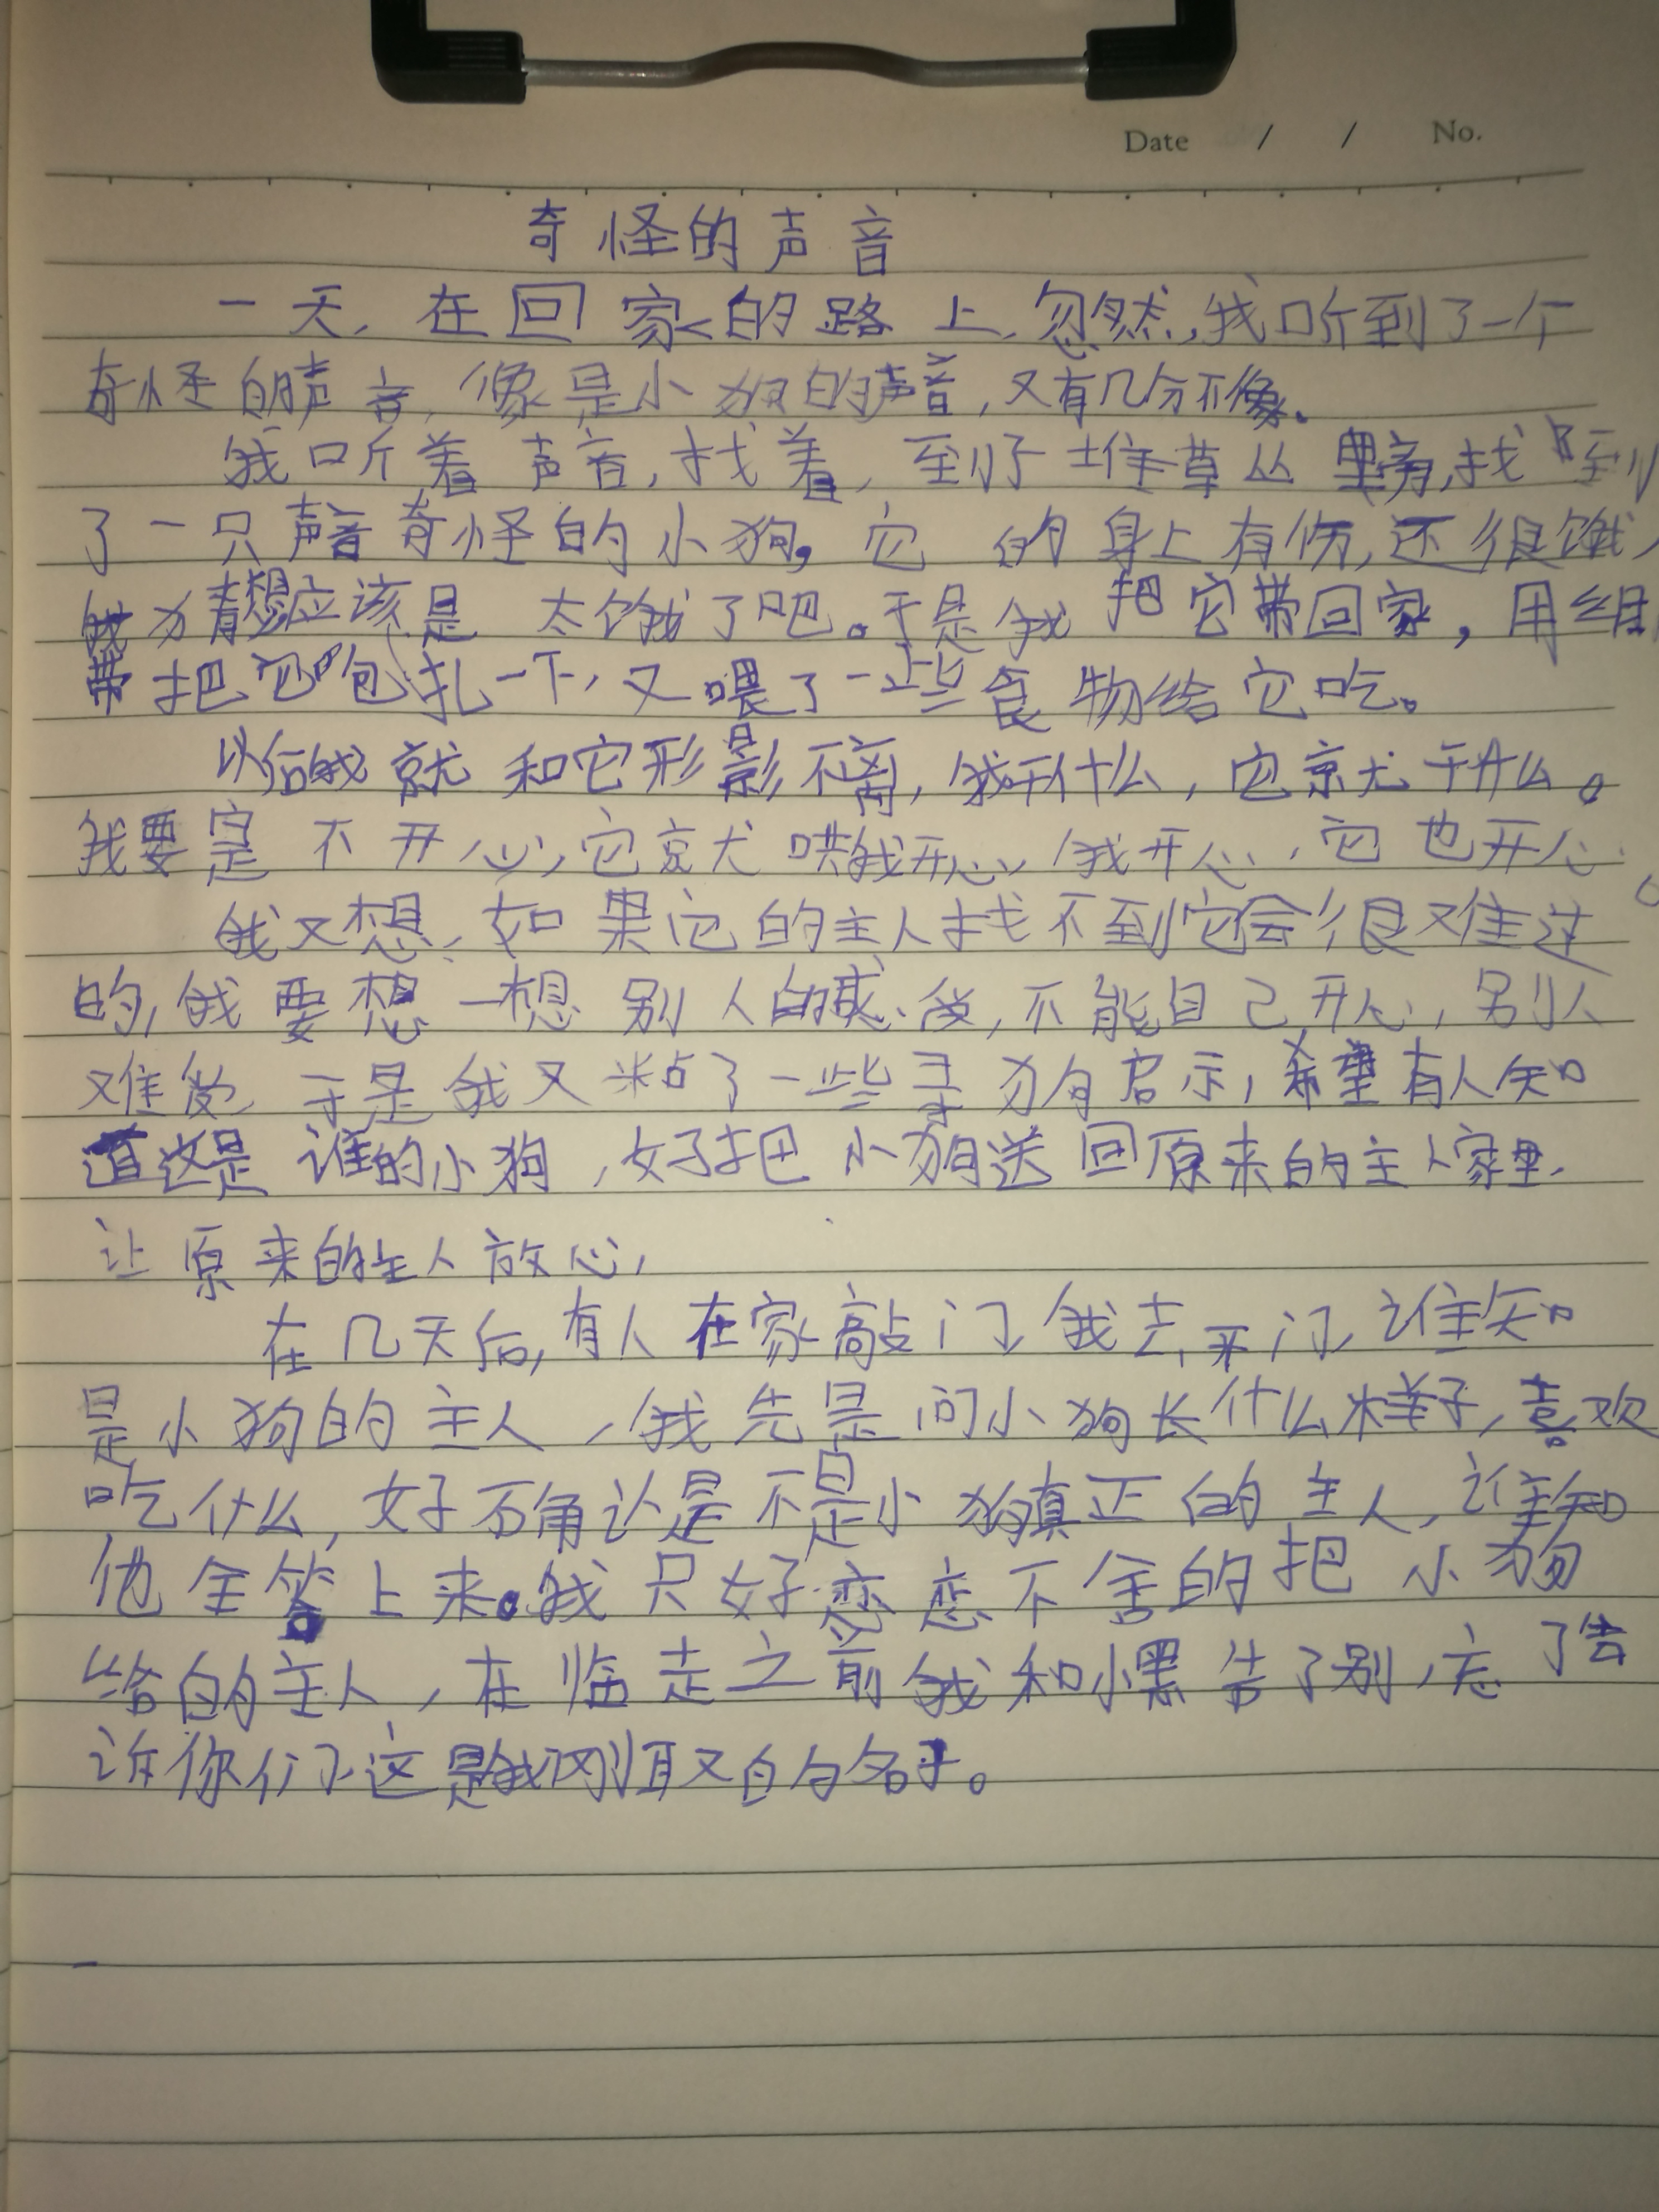 Date / / No.
奇怪的声音
一天,在回家的路上,忽然,我听到了一个
奇怪的声音,像是小狗的声音,又有几分不像。
我听着声音,找着,到了堆草丛里,找到
了一只声音奇怪的小狗,它的身上有伤,还很饿,
我猜想应该是太饿了吧。于是我把它带回家,用绷
带把它包扎一下,又喂了一些食物给它吃。
以后我就和它形影不离,我干什么,它就干什么。
我要是不开心,它就哄我开心,我开心,它也开心。
我又想,如果它的主人找不到它会很难过
的,我要想一想别人的感受,不能自己开心,别人
难受,于是我又粘了一些寻狗启示,希望有人知
道这是谁的小狗,好把小狗送回原来的主人家里.
让原来的主人放心,
在几天后,有人在家敲门,我去开门,谁知
是小狗的主人,我先是问小狗长什么样子,喜欢
吃什么,好确认是不是小狗真正的主人,谁知
他全答上来。我只好恋恋不舍的把小狗
给的主人,在临走之前我和小黑告了别,忘了告
诉你们,这是我刚取的名子。